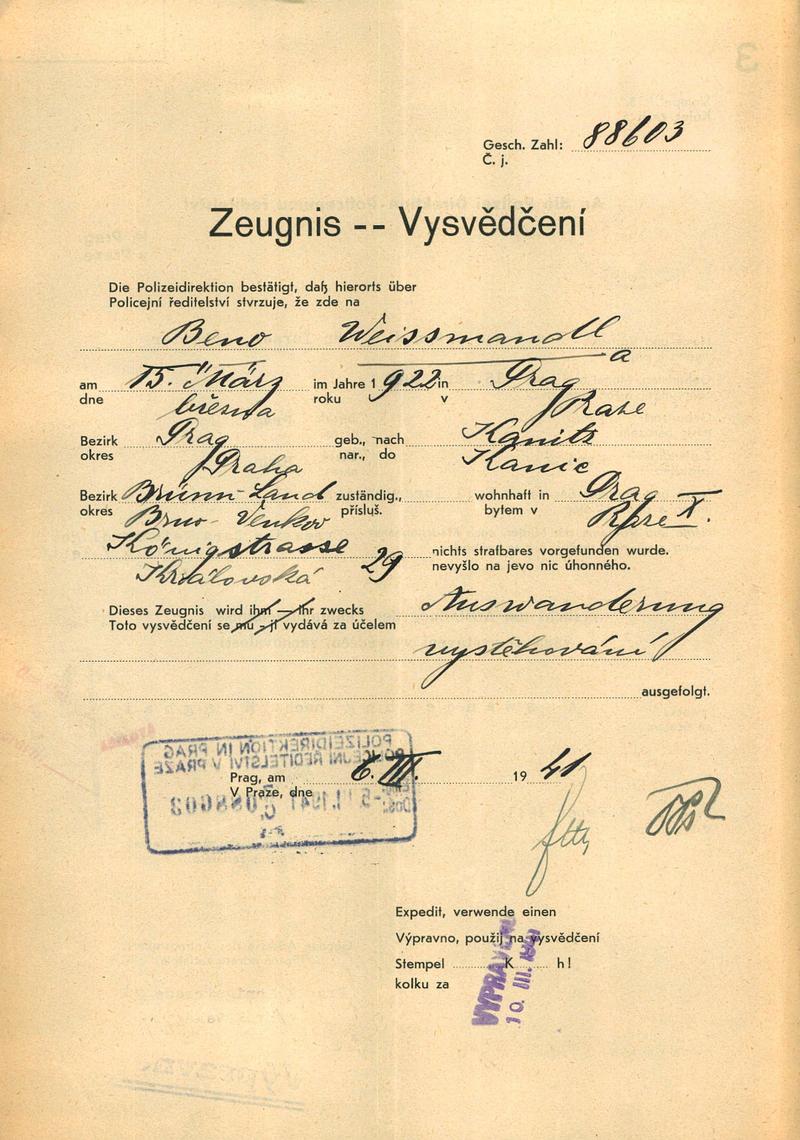 Gesch. Zahl: 88603
Č. j.
Zeugnis -- Vysvědčení
Die Polizeidirektion bestätigt, daß hierorts über
Policejní ředitelství stvrzuje, že zde na
Beno Weissmandl
a
am 15. März im Jahre 1922 in Prag
dne března roku v Praze
Bezirk Prag geb., nach Kanitz
okres Praha nar., do Kanic
Bezirk Brünn-Land zuständig., wohnhaft in Prag X.
okres Brno-Venkov přísluš. bytem v Praze
Königstrasse 29 nichts strafbares vorgefunden wurde.
Královská nevyšlo na jevo nic úhonného.
Dieses Zeugnis wird ihm — ihr zwecks Auswanderung
Toto vysvědčení se mu - jí vydává za účelem
vystěhování
ausgefolgt.
POLIZEIDIREKTION IN PRAG
POLICEJNÍ ŘEDITELSTVÍ V PRAZE
Prag, am 6. III. 1941
V Praze, dne
088603
Expedit, verwende einen
Výpravno, použij na vysvědčení
Stempel K h!
kolku za
VYPRAVENO
10. III. 1941